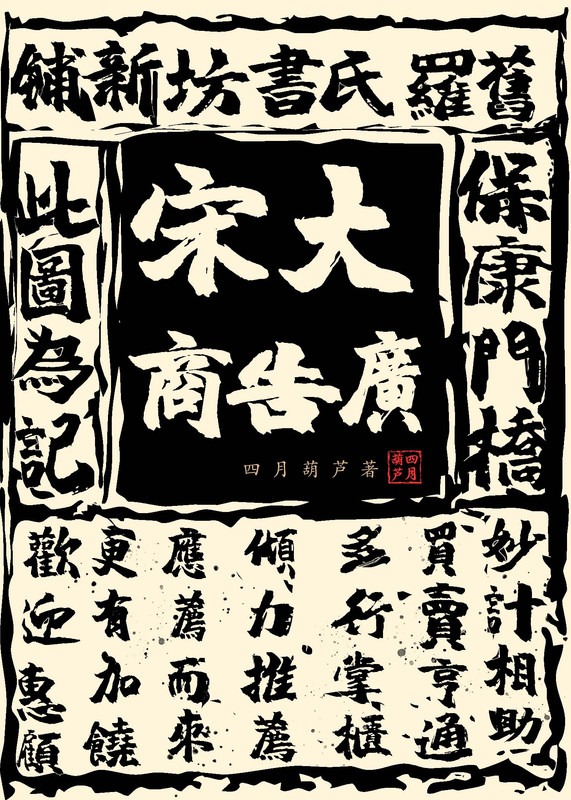 舊羅氏書坊新舖
保康門橋
大宋
廣告商
四月葫芦著
四月葫芦
此圖為記
妙計相助
買賣亨通
多行掌櫃
傾力推薦
應薦而來
更有加饒
歡迎惠顧